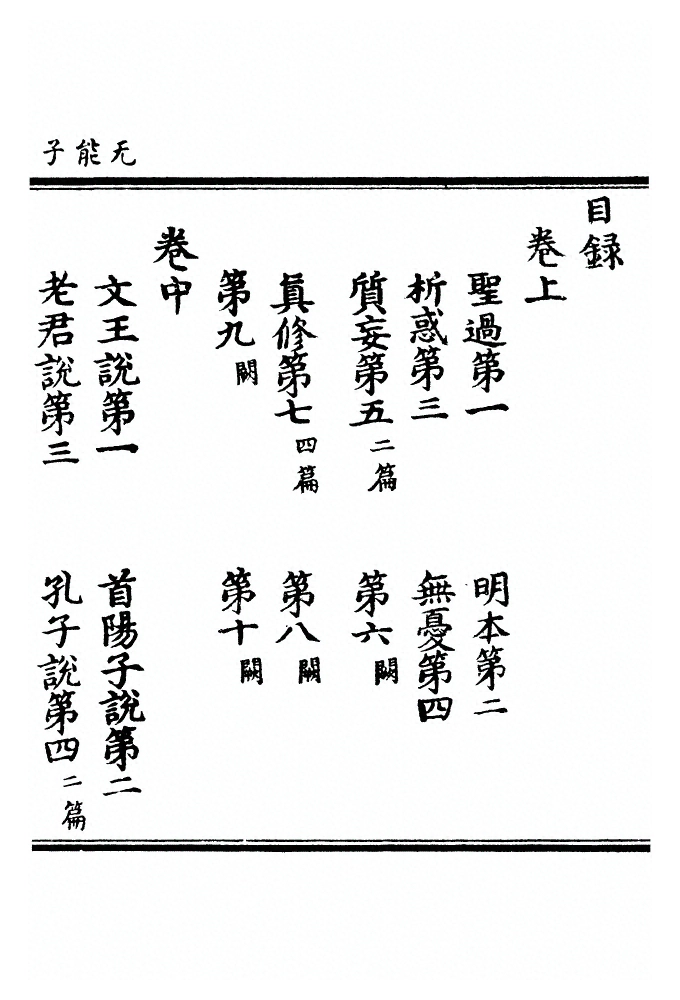 无能子
目録
卷上
聖過第一 明本第二
析惑第三 無憂第四
質妄第五 二篇 第六 闕
真修第七 四篇 第八 闕
第九 闕 第十 闕
卷中
文王說第一 首陽子說第二
老君說第三 孔子說第四 二篇